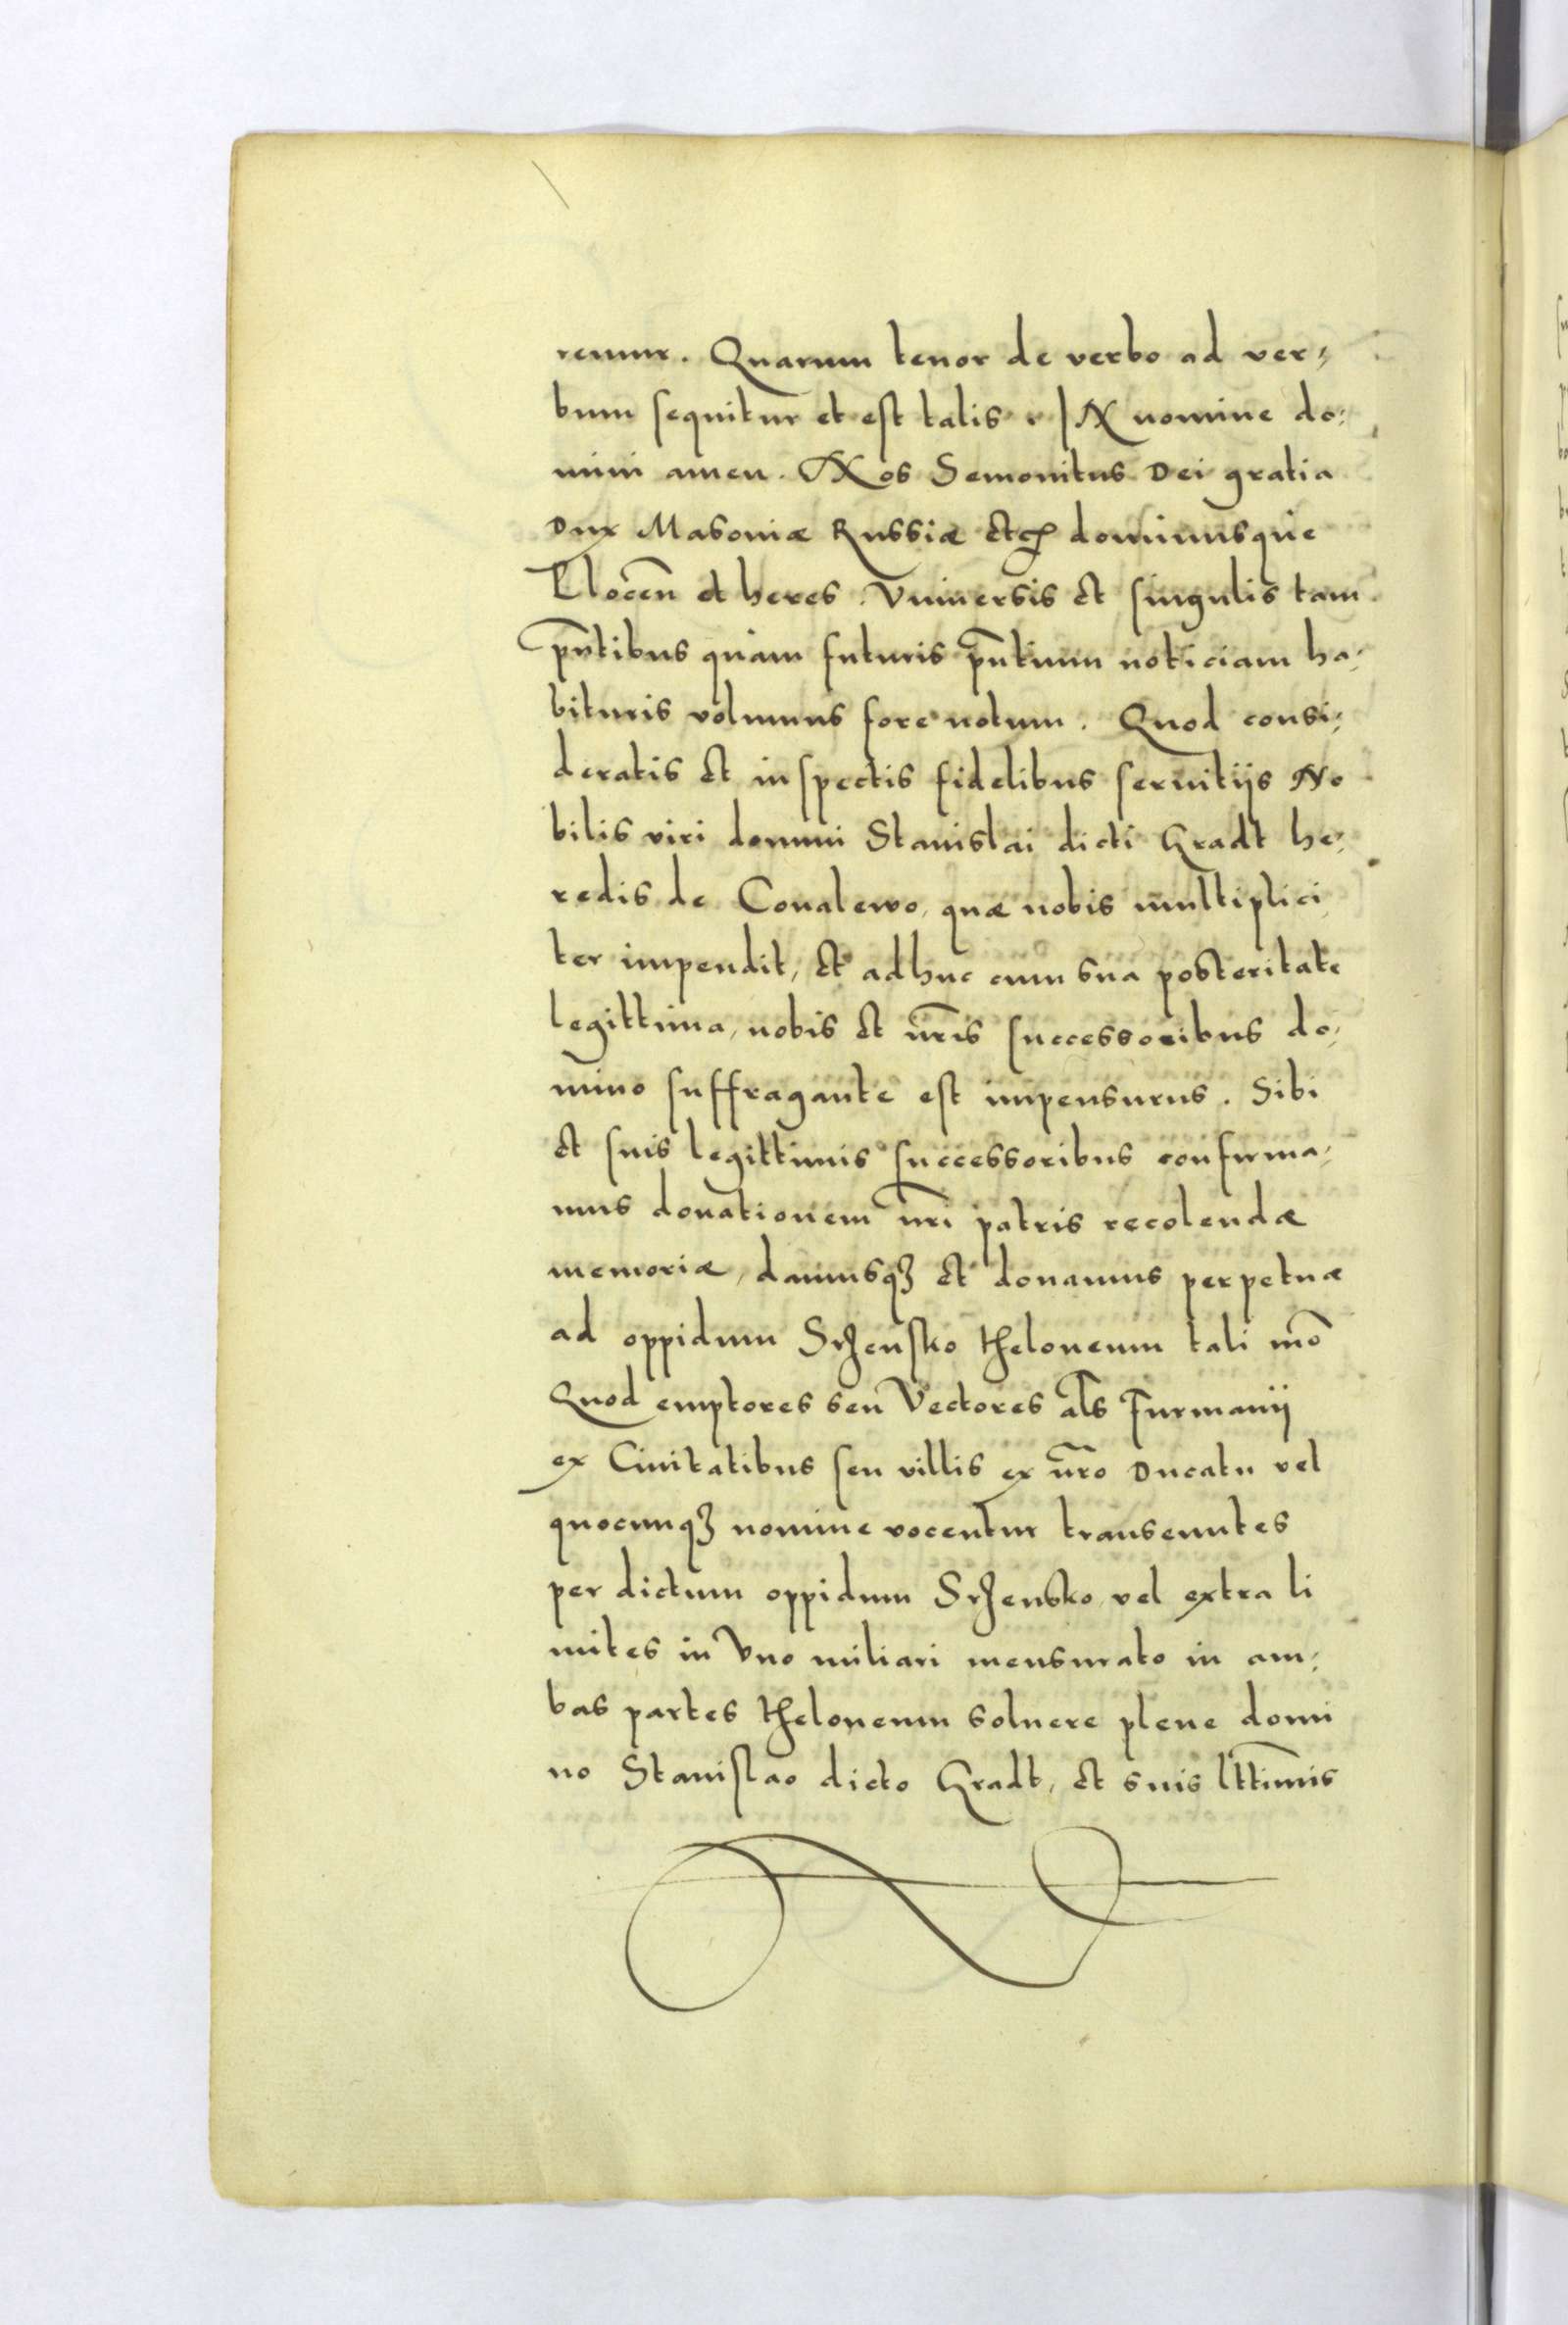 remur. Quarum tenor de verbo ad ver⸗
bum sequitur et est talis. IN nomine do⸗
mini amen. Nos Semovitus Dei gratia
Dux Masoviæ Russiæ etc̃ dominusque
Plocen̄ et heres. Vniversis et singulis tam
pn̄tibus quam futuris pn̄tium noticiam ha⸗
bituris volumus fore notum. Quod consi⸗
deratis et inspectis fidelibus servitijs No
bilis viri domini Stanislai dicti Gradt he⸗
redis de Covalewo, quæ nobis multiplici
ter impendit, et adhuc cum sua posteritate
legittima, nobis et nr̄is successoribus do⸗
mino suffragante est impensurus. Sibi
et suis legittimis successoribus confirma⸗
mus donationem nr̄i patris recolendæ
memoriæ, damusqꝫ et donamus perpetuæ
ad oppidum Srzensko theloneum tali mō
Quod emptores seu Vectores al̄s Furmanij
ex Civitatibus seu villis ex nr̄o Ducatu vel
quocunqꝫ nomine vocentur transeuntes
per dictum oppidum Srzensko, vel extra li
mites in Vno miliari mensurato in am⸗
bas partes theloneum soluere plene domi
no Stanislao dicto Gradt, et suis lttīmis